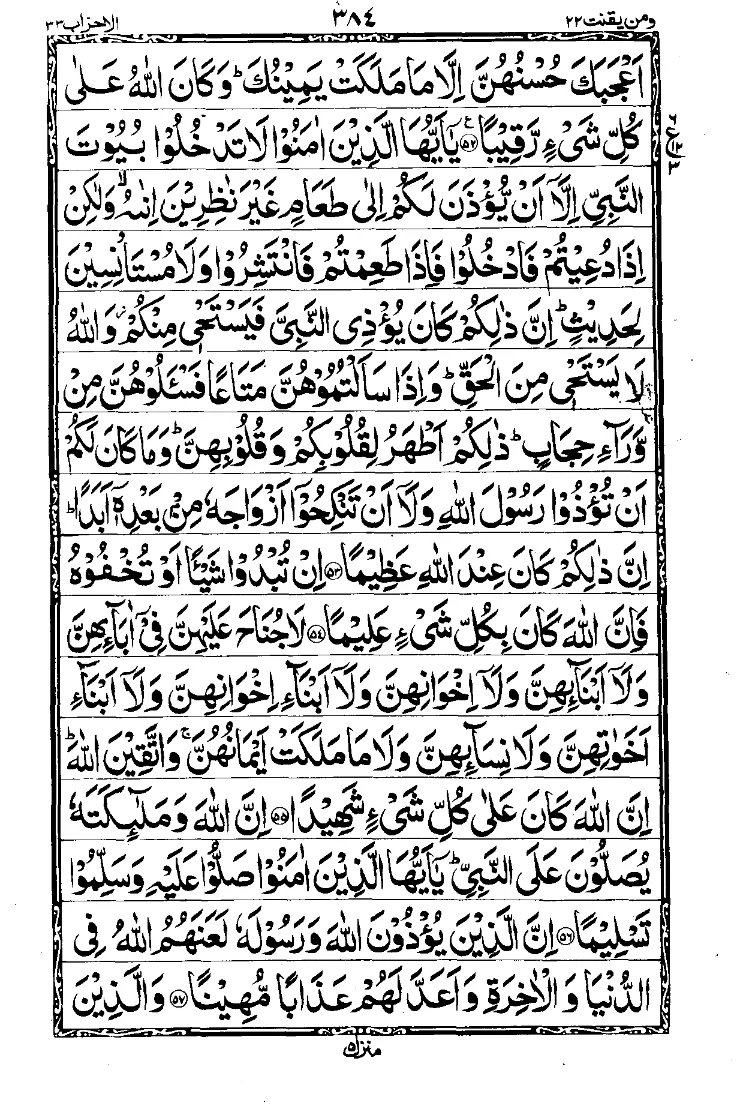 ومن يقنت ٢٢ ٣٨٤ الاحزاب ٣٣
اَعْجَبَكَ حُسْنُهُنَّ اِلَّا مَا مَلَكَتْ يَمِيْنُكَ ؕ وَكَانَ اللّٰهُ عَلٰى
كُلِّ شَىْءٍ رَّقِيْبًا ﴿۵۲﴾ يٰۤاَيُّهَا الَّذِيْنَ اٰمَنُوْا لَا تَدْخُلُوْا بُيُوْتَ
النَّبِىِّ اِلَّاۤ اَنْ يُّؤْذَنَ لَكُمْ اِلٰى طَعَامٍ غَيْرَ نٰظِرِيْنَ اِنٰىهُ ۙ وَلٰكِنْ
اِذَا دُعِيْتُمْ فَادْخُلُوْا فَاِذَا طَعِمْتُمْ فَانْتَشِرُوْا وَلَا مُسْتَاْنِسِيْنَ
لِحَدِيْثٍ ؕ اِنَّ ذٰلِكُمْ كَانَ يُؤْذِى النَّبِىَّ فَيَسْتَحْىٖ مِنْكُمْ ؗ وَاللّٰهُ
لَا يَسْتَحْىٖ مِنَ الْحَقِّ ؕ وَاِذَا سَاَلْتُمُوْهُنَّ مَتَاعًا فَسْـَٔلُوْهُنَّ مِنْ
وَّرَآءِ حِجَابٍ ؕ ذٰلِكُمْ اَطْهَرُ لِقُلُوْبِكُمْ وَقُلُوْبِهِنَّ ؕ وَمَا كَانَ لَكُمْ
اَنْ تُؤْذُوْا رَسُوْلَ اللّٰهِ وَلَاۤ اَنْ تَنْكِحُوْۤا اَزْوَاجَهٗ مِنْۢ بَعْدِهٖۤ اَبَدًا ؕ
اِنَّ ذٰلِكُمْ كَانَ عِنْدَ اللّٰهِ عَظِيْمًا ﴿۵۳﴾ اِنْ تُبْدُوْا شَيْـًٔا اَوْ تُخْفُوْهُ
فَاِنَّ اللّٰهَ كَانَ بِكُلِّ شَىْءٍ عَلِيْمًا ﴿۵۴﴾ لَا جُنَاحَ عَلَيْهِنَّ فِىْۤ اٰبَآئِهِنَّ
وَلَاۤ اَبْنَآئِهِنَّ وَلَاۤ اِخْوَانِهِنَّ وَلَاۤ اَبْنَآءِ اِخْوَانِهِنَّ وَلَاۤ اَبْنَآءِ
اَخَوٰتِهِنَّ وَلَا نِسَآئِهِنَّ وَلَا مَا مَلَكَتْ اَيْمَانُهُنَّ ۚ وَاتَّقِيْنَ اللّٰهَ ؕ
اِنَّ اللّٰهَ كَانَ عَلٰى كُلِّ شَىْءٍ شَهِيْدًا ﴿۵۵﴾ اِنَّ اللّٰهَ وَمَلٰٓئِكَتَهٗ
يُصَلُّوْنَ عَلَى النَّبِىِّ ؕ يٰۤاَيُّهَا الَّذِيْنَ اٰمَنُوْا صَلُّوْا عَلَيْهِ وَسَلِّمُوْا
تَسْلِيْمًا ﴿۵۶﴾ اِنَّ الَّذِيْنَ يُؤْذُوْنَ اللّٰهَ وَرَسُوْلَهٗ لَعَنَهُمُ اللّٰهُ فِى
الدُّنْيَا وَالْاٰخِرَةِ وَاَعَدَّ لَهُمْ عَذَابًا مُّهِيْنًا ﴿۵۷﴾ وَالَّذِيْنَ
منزل ۵